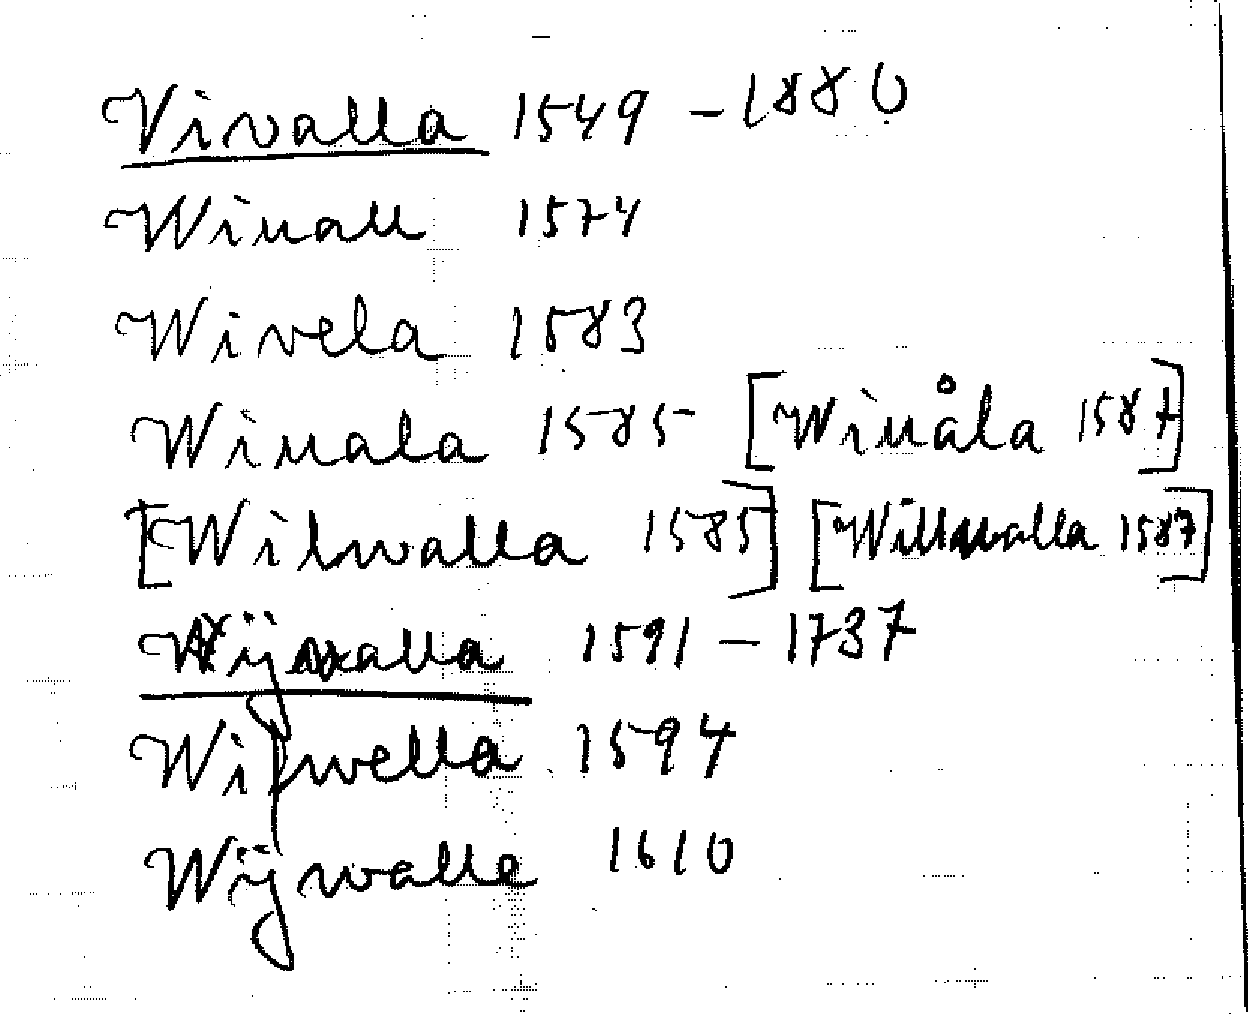 Vivalla 1549 - 1880
Winall 1574
Wivela 1583
Winala 1585 [Winåla 1587]
[Wilwalla 1585] [Willwalla 1587]
Wijwalla 1591 - 1737
Wijwella 1594
Wijwalle 1610